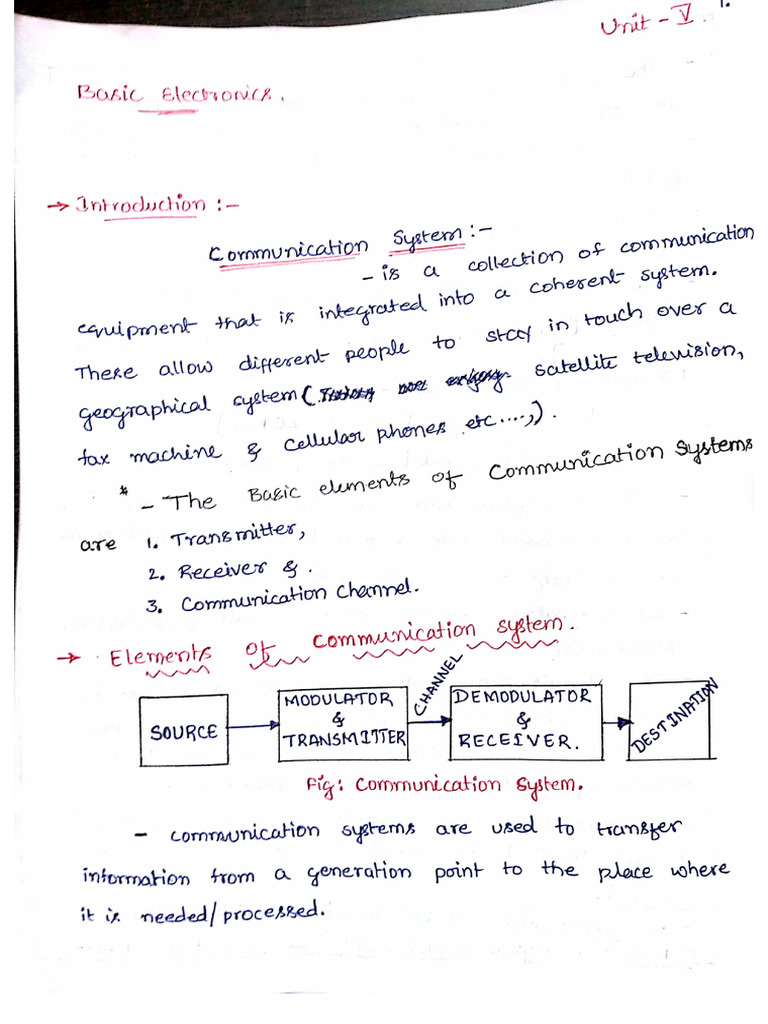 1.
Unit - V.
Basic Electronics.
→ Introduction :-
Communication System :-
- is a collection of communication
equipment that is integrated into a coherent system.
These allow different people to stay in touch over a
geographical system ( satellite television,
fax machine & cellular phones etc ....,).
* - The Basic elements of Communication Systems
are 1. Transmitter,
2. Receiver & .
3. Communication Channel.
→ Elements of Communication system.
SOURCE
MODULATOR
&
TRANSMITTER
CHANNEL
DEMODULATOR
&
RECEIVER.
DESTINATION
Fig: Communication System.
- communication systems are used to transfer
information from a generation point to the place where
it is needed/processed.